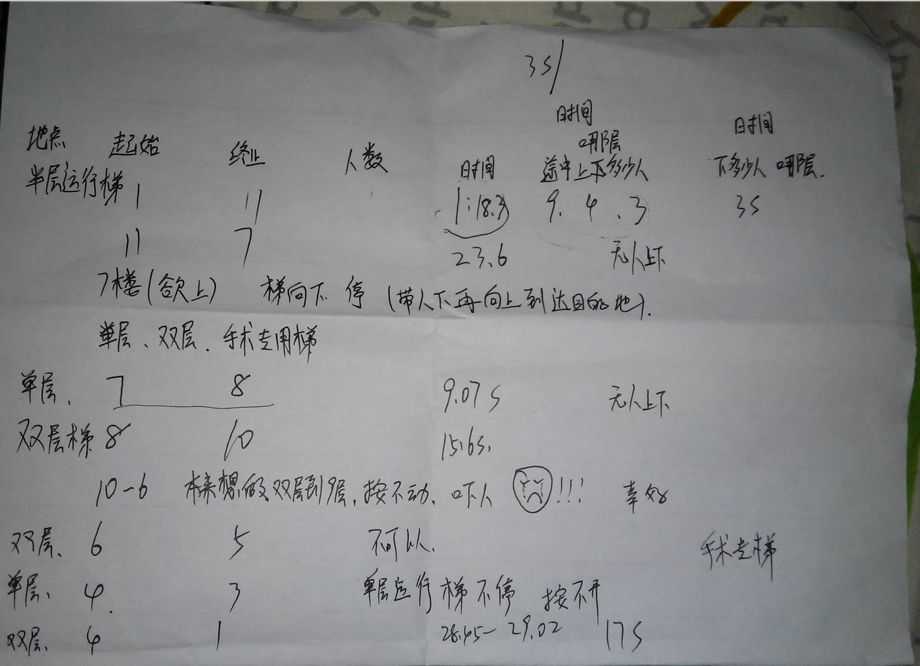 3S/
时间 时间
地点 起始 终止 人数 哪层
半层运行梯 时间 途中上下多少人 下多少人 哪层.
1 11 1:18.3 9. 4 . 3 3S
11 7 23.6 无人上下
7楼(欲上) 梯向下 停 (带人下再向上到达目的地).
单层、双层、手术专用梯
单层、 7 8 9.07S 无人上下
双层梯 8 10 15.6S.
10-6 本来想做双层到9层,按不动,吓人 !!! 幸好
双层、 6 5 不可以. 手术专梯
单层、 4. 3 单层运行梯不停 按不开
双层、 4 1 28.45-29.02 17S